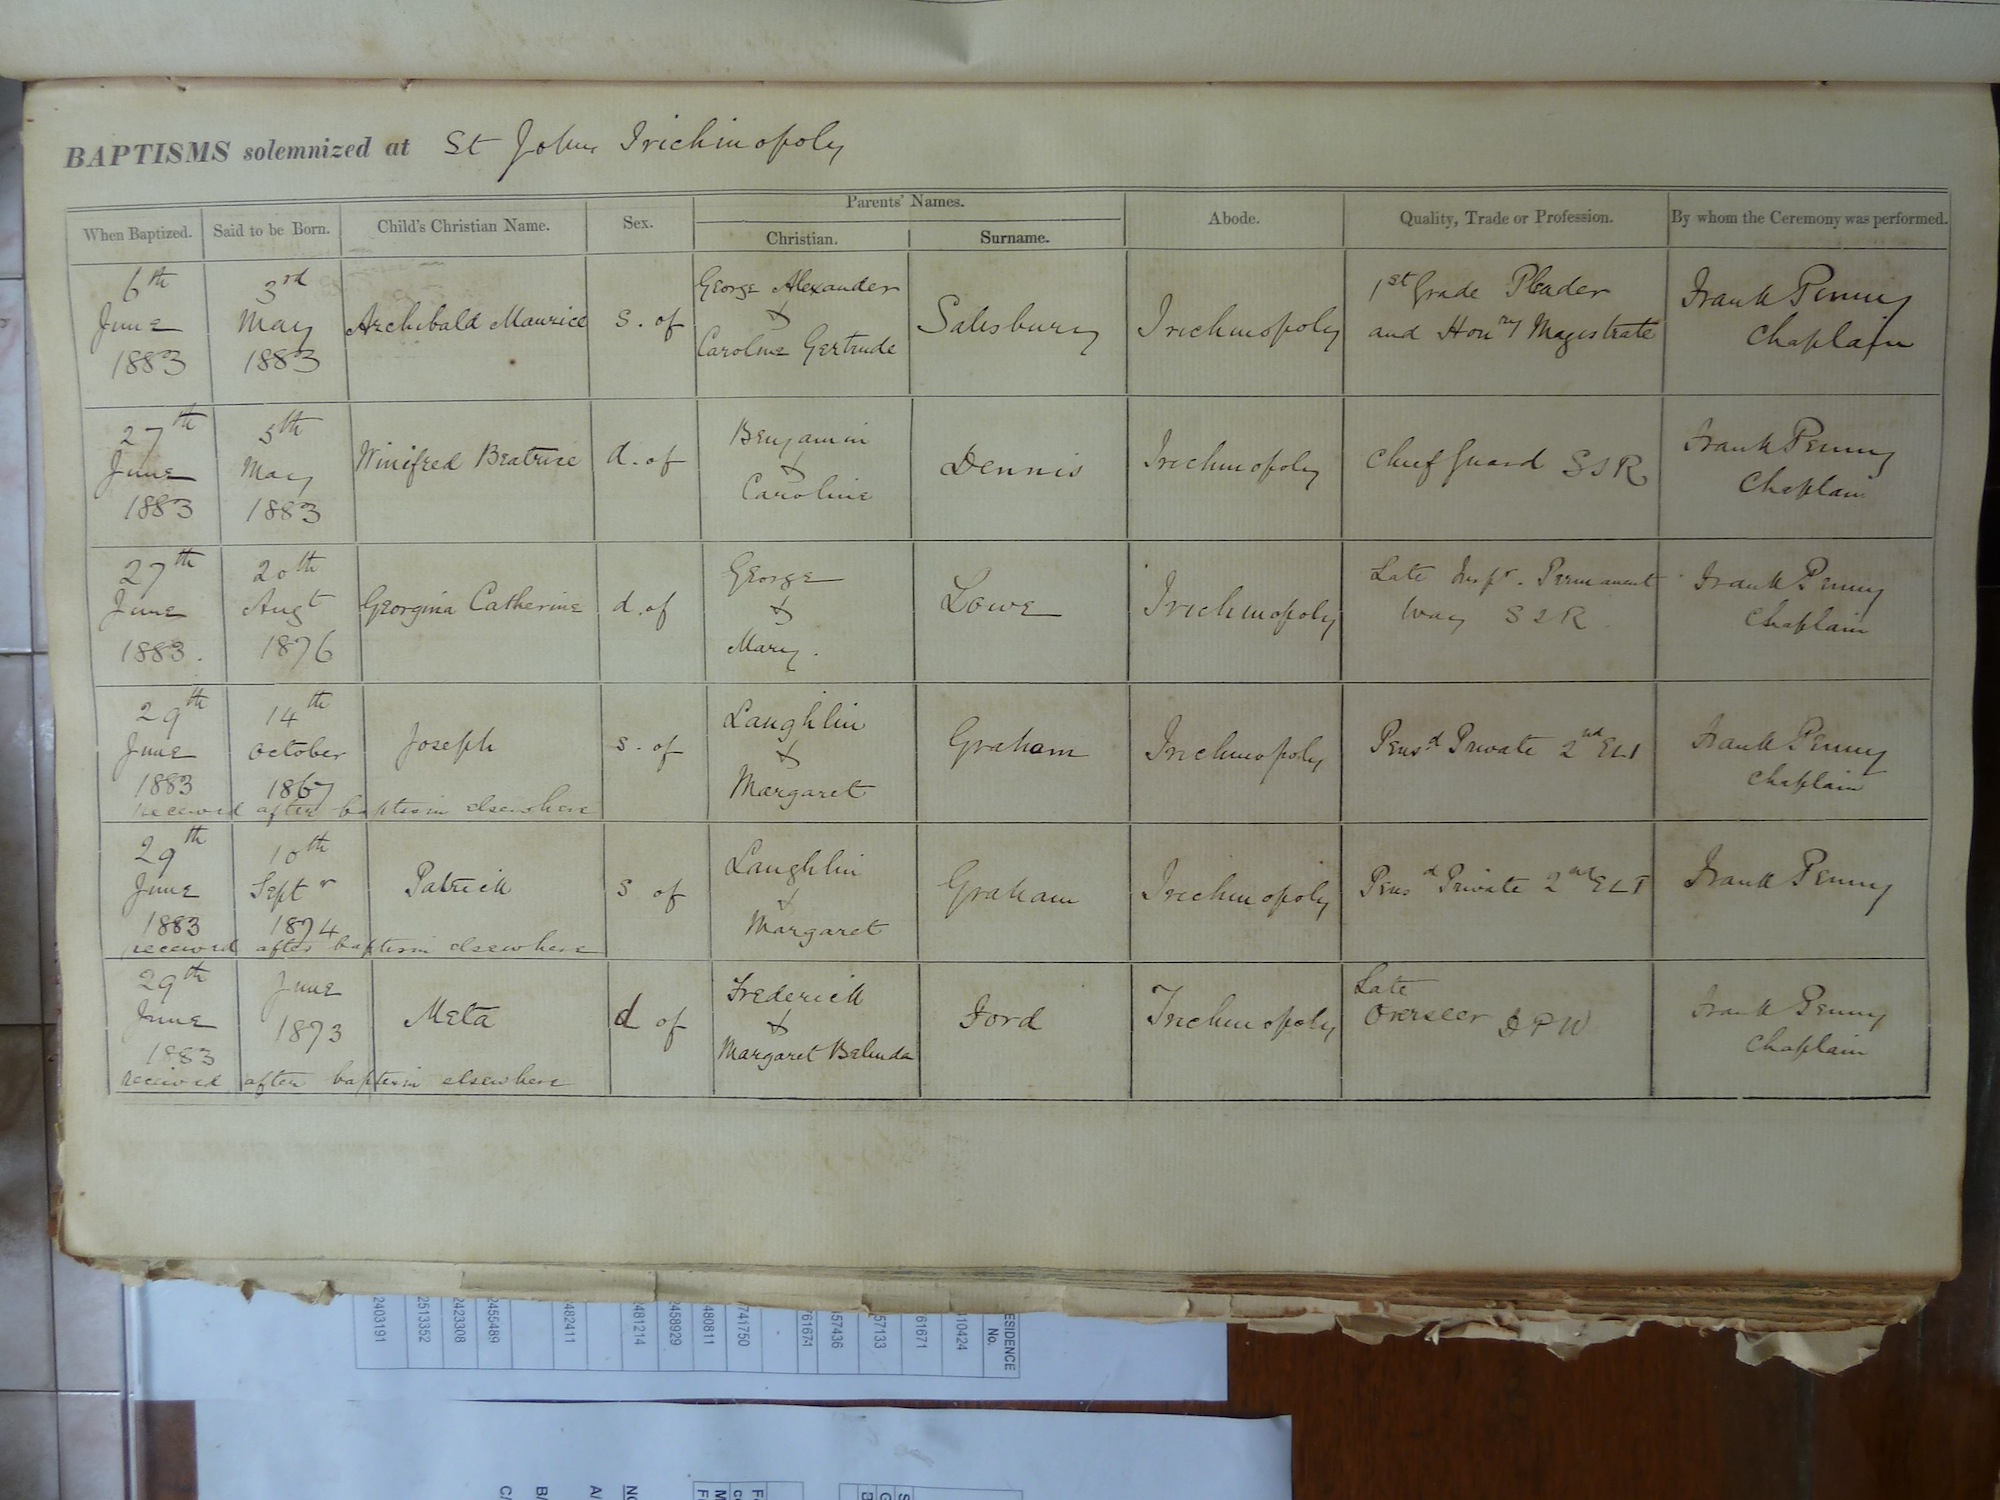 BAPTISMS solemnized at St Johns Trichinopoly
When Baptized. Said to be Born. Child's Christian Name. Sex. Parents' Names. Abode. Quality, Trade or Profession. By whom the Ceremony was performed.
Christian. Surname.
6th June 1883
3rd May 1883
Archibald Maurice
s. of
George Alexander
&
Caroline Gertrude
Salisbury
Trichinopoly
1st Grade Pleader
and Honry Magistrate
Frank Penny
Chaplain
27th June 1883
5th May 1883
Winifred Beatrice
d. of
Benjamin
&
Caroline
Dennis
Trichinopoly
Chief Guard S I R
Frank Penny
Chaplain
27th June 1883.
20th Augt 1876
Georgina Catherine
d. of
George
&
Mary.
Lowe
Trichinopoly
Late Inspr. Permanent
Way S I R.
Frank Penny
Chaplain
29th June 1883
14th October 1867
Joseph
s. of
Laughlin
&
Margaret
Graham
Trichinopoly
Pensd Private 2nd ELI
Frank Penny
Chaplain
received after baptism elsewhere
29th June 1883
10th Septr 1874
Patrick
s of
Laughlin
&
Margaret
Graham
Trichinopoly
Pensd Private 2nd ELI
Frank Penny
received after baptism elsewhere
29th June 1883
June 1873
Meta
d of
Frederick
&
Margaret Belinda
Ford
Trichinopoly
Late
Overseer D P W
Frank Penny
Chaplain
received after baptism elsewhere
ESIDENCE
No.
10424
61671
57133
57436
761671
741750
480811
2458929
2481214
2482411
2455489
2423308
2513352
2403191